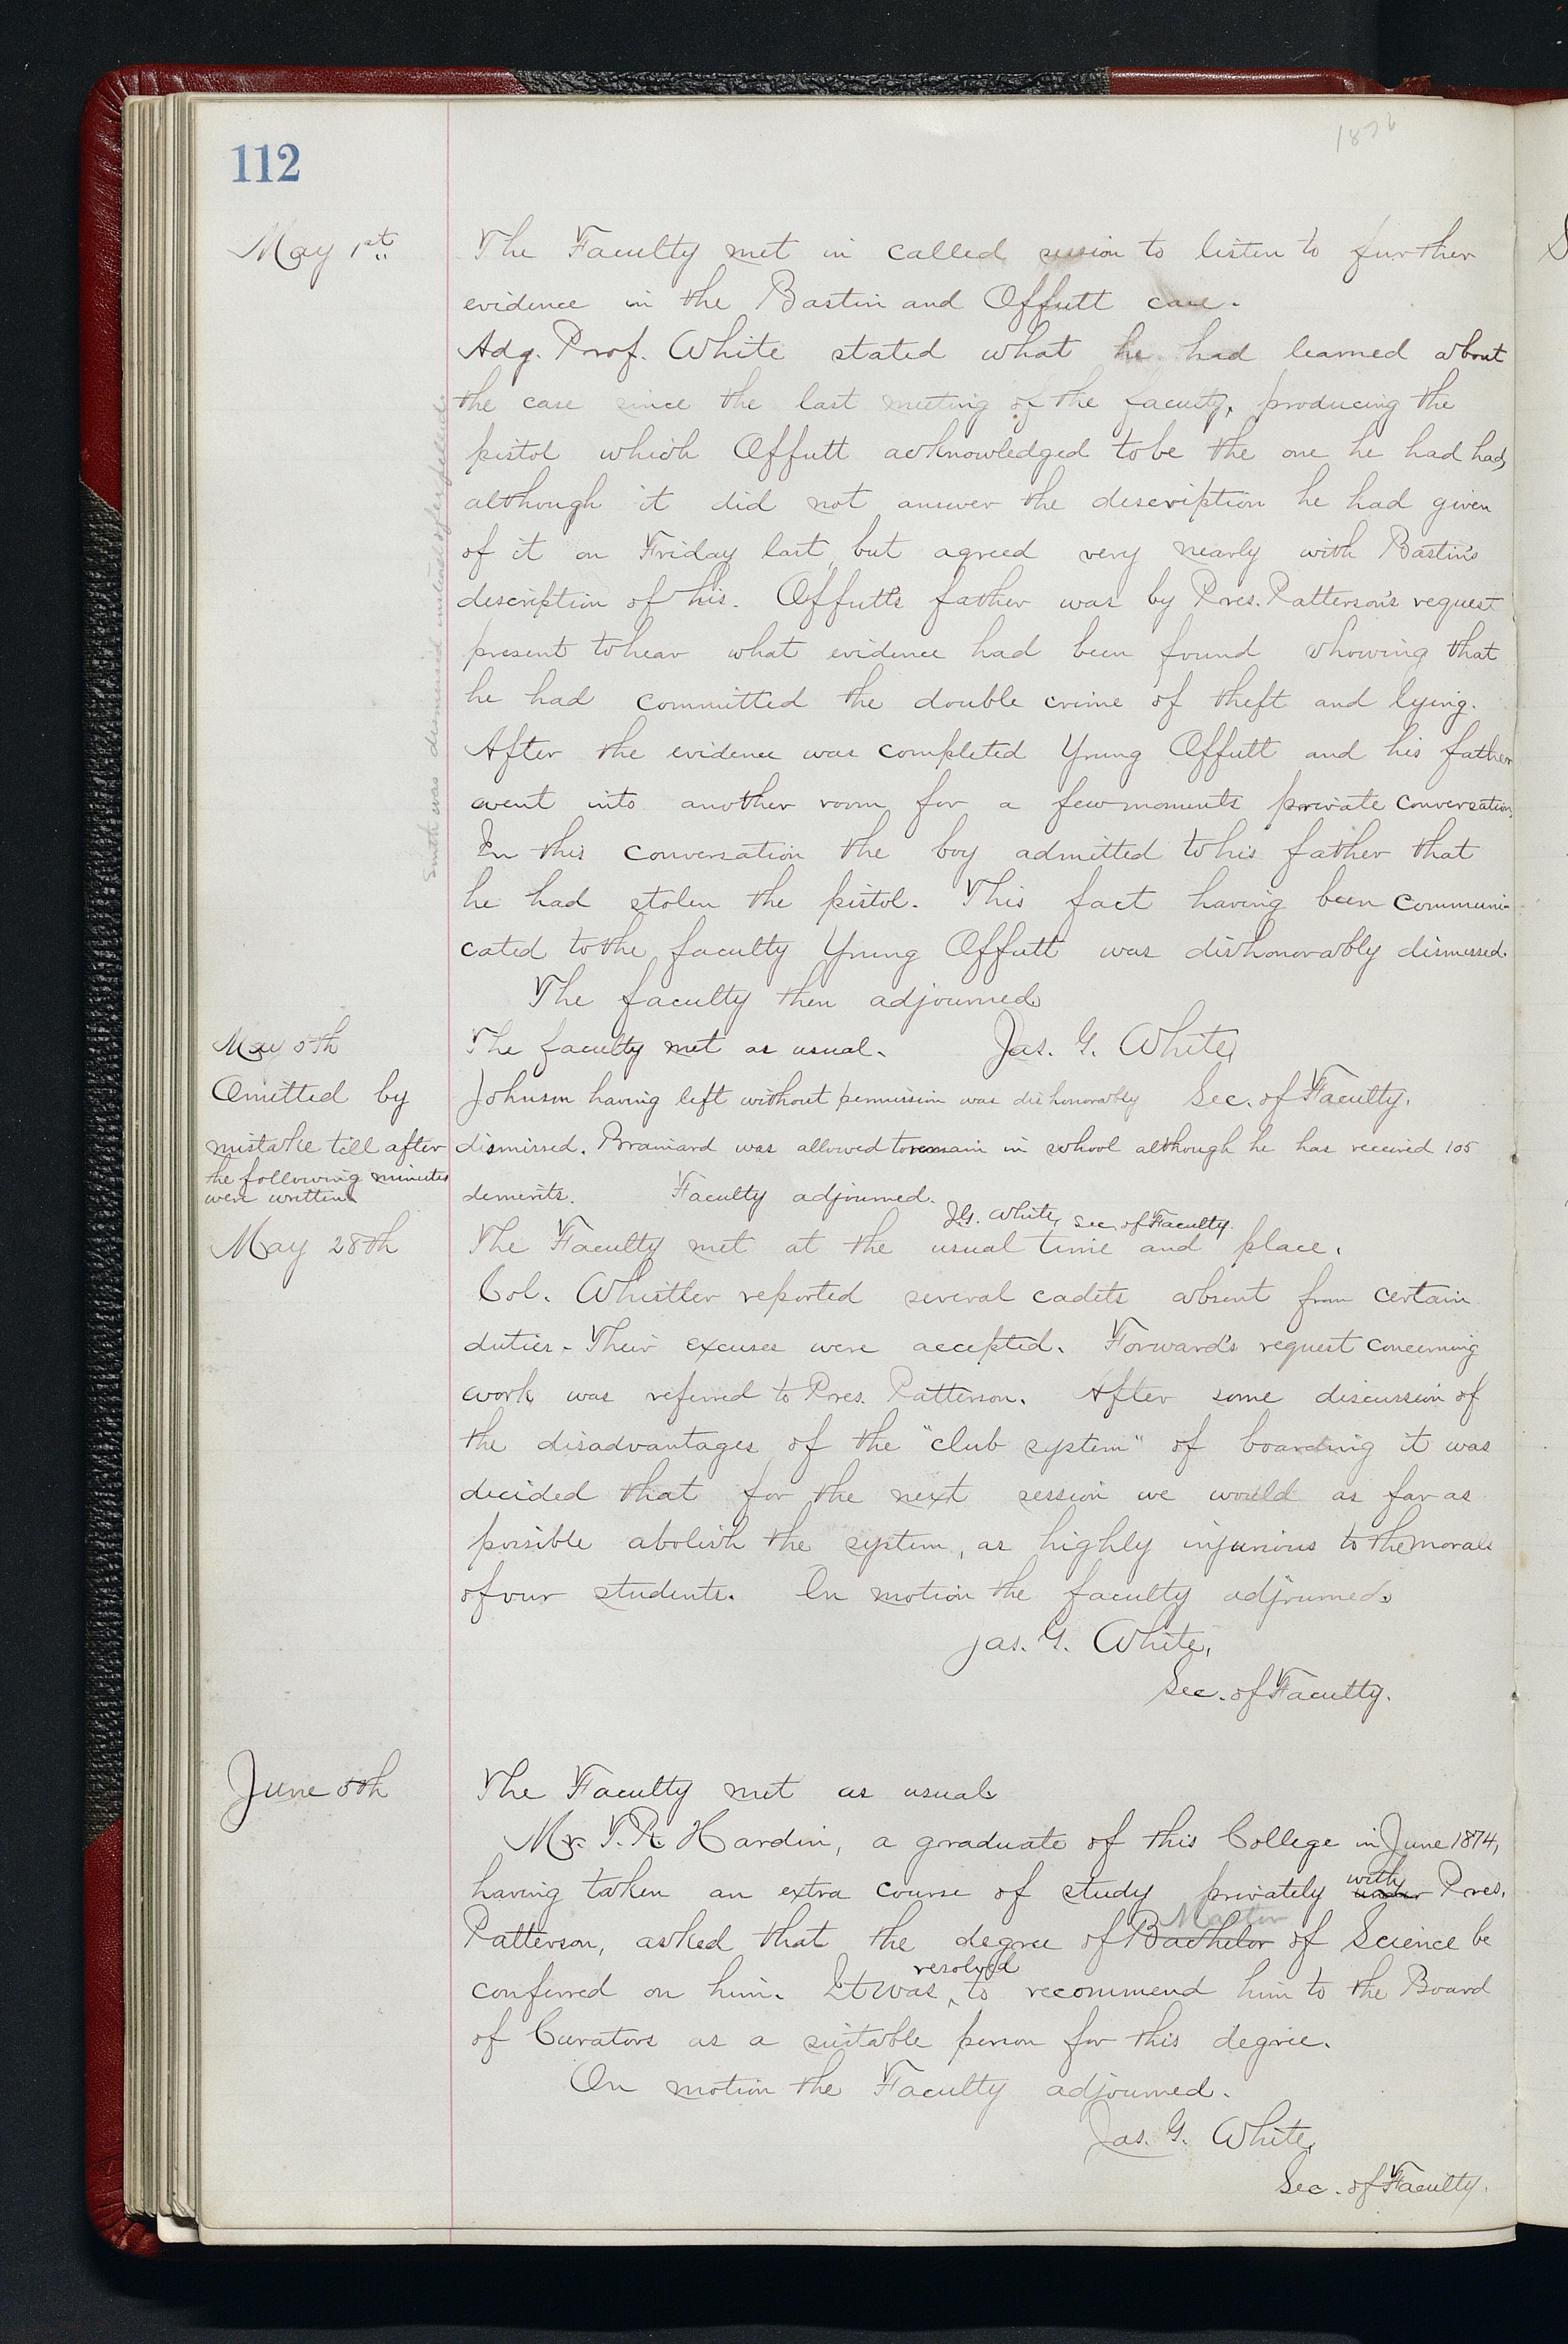 112
May 1st
The Faculty met in called session to listen to further
evidence in the Bastin and Offutt case.
Adg. Prof. White stated what he had learned about
the case since the last meeting of the faculty, producing the
pistol which Offutt acknowledged to be the one he had had,
although it did not answer the description he had given
of it on Friday last, but agreed very nearly with Bastin's
description of his. Offutt's father was by Pres. Patterson's request
present to hear what evidence had been found showing that
he had committed the double crime of theft and lying.
After the evidence was completed Young Offutt and his father
went into another room for a few moments private conversation.
In this conversation the boy admitted to his father that
he had stolen the pistol. This fact having been communi-
cated to the faculty Young Offutt was dishonorably dismissed.
The faculty then adjourned
Jas. G. White,
Sec. of Faculty.
Smith was dismissed instead of
May 5th
Omitted by
mistake till after
the following minutes
were written
The faculty met as usual.
Johnson having left without permission was dishonorably
dismissed. Brainard was allowed to remain in school although he has received 105
demerits. Faculty adjourned.
J.G. White, Sec. of Faculty.
May 28th
The Faculty met at the usual time and place.
Col. Whistler reported several cadets absent from certain
duties. Their excuses were accepted. Forward's request concerning
work was referred to Pres. Patterson. After some discussion of
the disadvantages of the "club system" of boarding it was
decided that for the next session we would as far as
possible abolish the system, as highly injurious to the morals
of our students. On motion the faculty adjourned.
Jas. G. White,
Sec. of Faculty.
June 5th
The Faculty met as usual
Mr. T. R. Hardin, a graduate of this College in June 1874,
having taken an extra course of study privately under with Pres.
Patterson, asked that the degree of Bachelor Master of Science be
conferred on him. It was ^ resolved to recommend him to the Board
of Curators as a suitable person for this degree.
On motion the Faculty adjourned.
Jas. G. White,
Sec. of Faculty.